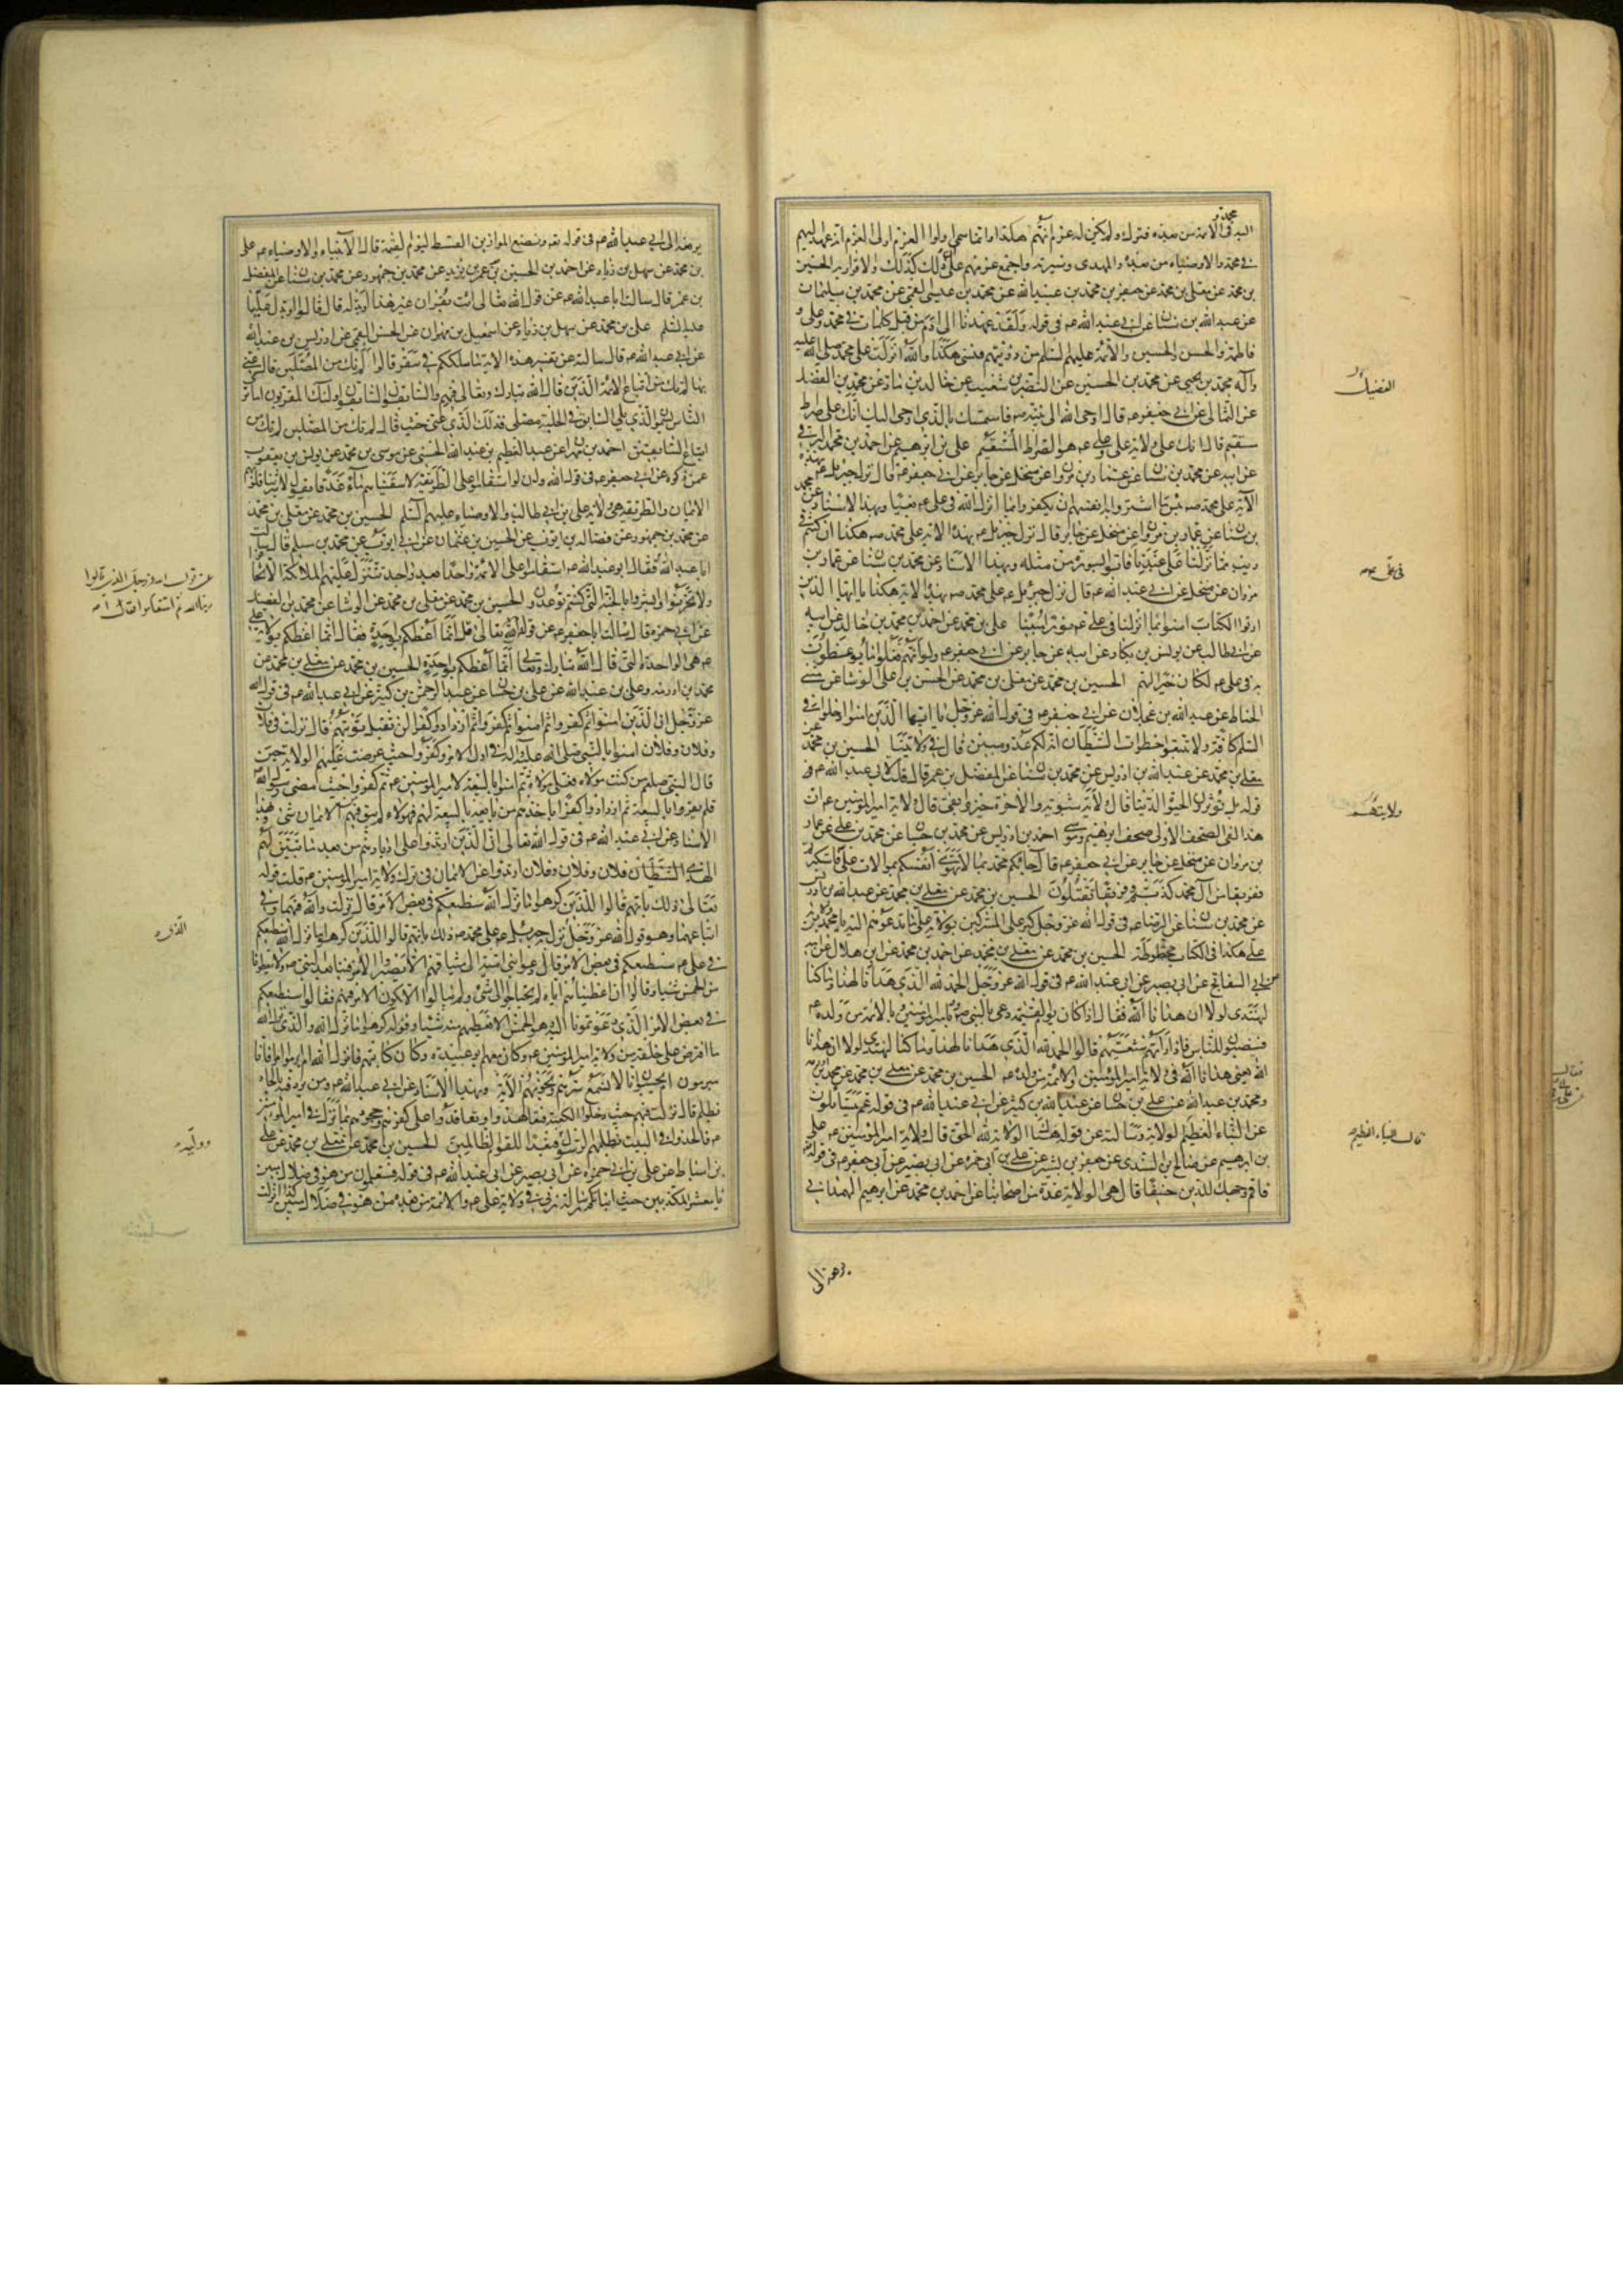 اليه فى محمد والأئمة من بعده فترك ولم يكن له عزم انهم هكذا وانما سمى اولوا العزم اولى العزم انه عهد اليهم
فى محمد والاوصياء من بعده والمهدى وسيرته واجمع عزمهم على ان ذلك كذلك والاقرار به الحسين
بن محمد عن معلى بن محمد عن جعفر بن محمد بن عبيد الله عن محمد بن عيسى القمى عن محمد بن سليمان
عن عبد الله بن سنان عن ابى عبد الله ع فى قوله ولقد عهدنا الى ادم من قبل كلمات فى محمد وعلى و
فاطمة والحسن والحسين والائمة عليهم السلم من ذريتهم فنسى هكذا والله انزلت على محمد صلى الله عليه
وآله محمد بن يحيى عن محمد بن الحسين عن النضر بن شعيب عن خالد بن ماد عن محمد بن الفضل
عن الثمالى عن ابى جعفر ع قال اوحى الله الى نبيه ص فاستمسك بالذى اوحى اليك انك على صراط
مستقيم قال انك على ولاية على وعلى ع هو الصراط المستقيم على بن ابرهيم عن احمد بن محمد البرقى
عن ابيه عن محمد بن سنان عن عمار بن مروان عن منخل عن جابر عن ابى جعفر ع قال نزل جبرئيل ع بهذه
الآية على محمد ص بئسما اشتروا به انفسهم ان يكفروا بما انزل الله فى على ع بغيا وبهذا الاسناد عن محمد
بن سنان عن عمار بن مروان عن منخل عن جابر قال نزل جبرئيل ع بهذه الاية على محمد ص هكذا ان كنتم فى
ريب مما نزلنا على عبدنا فاتوا بسورة من مثله وبهذا الاسناد عن محمد بن سنان عن عمار بن
مروان عن منخل عن ابى عبد الله ع قال نزل جبرئيل ع على محمد ص بهذه الاية هكذا يا ايها الذين
اوتوا الكتاب امنوا بما انزلنا فى على ع نورا مبينا على بن محمد عن احمد بن محمد بن خالد عن ابيه
عن ابى طالب عن يونس بن بكار عن ابيه عن جابر عن ابى جعفر ع ولو انهم فعلوا ما يوعظون
به فى على ع لكان خيرا لهم الحسين بن محمد عن معلى بن محمد عن الحسن بن على الوشا عن مثنى
الحناط عن عبد الله بن عجلان عن ابى جعفر ع فى قول الله عز وجل يا ايها الذين امنوا ادخلوا فى
السلم كافة ولا تتبعوا خطوات الشيطان انه لكم عدو مبين قال فى ولايتنا الحسين بن محمد عن
معلى بن محمد عن عبد الله بن ادريس عن محمد بن سنان عن المفضل بن عمر قال قلت لابى عبد الله ع
قوله بل تؤثرون الحيوة الدنيا قال ولاية شبوية والاخرة خير وابقى قال ولاية امير المؤمنين ع ان
هذا لفى الصحف الاولى صحف ابرهيم وموسى احمد بن ادريس عن محمد بن حسان عن محمد بن على عن عمار
بن مروان عن منخل عن جابر عن ابى جعفر ع قال جاءكم محمد بما لا تهوى انفسكم بموالات على فاستكبرتم
ففريقا من آل محمد كذبتم وفريقا تقتلون الحسين بن محمد عن معلى بن محمد عن عبد الله بن ادريس
عن محمد بن سنان عن الرضا ع فى قول الله عز وجل كبر على المشركين بولاية على ما تدعوهم اليه يا محمد من ولاية
على هكذا فى الكتاب مخطوطة الحسين بن محمد عن معلى بن محمد عن احمد بن محمد عن ابن هلال عن ابيه
عن ابى السفاتج عن ابى بصير عن ابى عبد الله ع فى قول الله عز وجل الحمد لله الذى هدانا لهذا وما كنا
لنهتدى لولا ان هدانا الله فقال اذا كان يوم القيمة دعى بالنبى ص وبامير المؤمنين وبالائمة من ولده ع
فينصبون للناس فاذا رأتهم شيعتهم قالوا الحمد لله الذى هدانا لهذا وما كنا لنهتدى لولا ان هدانا
الله يعنى هدانا الله فى ولاية امير المؤمنين والائمة من ولده ع الحسين بن محمد عن معلى بن محمد عن محمد بن اورمه
ومحمد بن عبد الله عن على بن حسان عن عبد الله بن كثير عن ابى عبد الله ع فى قوله عم يتساءلون
عن النباء العظيم الولاية وسالته عن قوله هنالك الولاية لله الحق قال ولاية امير المؤمنين ع على
بن ابرهيم عن صالح بن السندى عن جعفر بن بشير عن على بن ابى حمزة عن ابى بصير عن ابى جعفر ع فى قوله
فاقم وجهك للدين حنيفا قال هى الولاية عدة من اصحابنا عن احمد بن محمد عن ابرهيم الهمدانى
يرفعه الى
الفضيل
فى على ع
ولايتهم
قال النباء العظيم
يرفعه الى ابى عبد الله ع فى قوله تع ونضع الموازين القسط ليوم القيمة قال الانبياء والاوصياء ع على
بن محمد عن سهل بن زياد عن احمد بن الحسين بن عمر بن يزيد عن محمد بن جمهور عن محمد بن سنان عن المفضل
بن عمر قال سالت ابا عبد الله ع عن قول الله تعالى ائت بقران غير هذا او بدله قال قالوا او بدل عليا
عليه السلم على بن محمد عن سهل بن زياد عن اسمعيل بن مهران عن الحسن القمى عن ادريس بن عبد الله
عن ابى عبد الله ع قال سالته عن تفسير هذه الاية ما سلككم فى سقر قالوا لم نك من المصلين قال عنى
بها لم نك من اتباع الائمة الذين قال الله تبارك وتعالى فيهم والسابقون السابقون اولئك المقربون اما ترى
الناس يسمون الذى يلى السابق فى الحلبة مصلى فذلك الذى عنى حيث قال لم نك من المصلين لم نك من
اتباع السابقين احمد بن مهران عن عبد العظيم بن عبد الله الحسنى عن موسى بن محمد عن يونس بن يعقوب
عمن ذكره عن ابى جعفر ع فى قول الله وان لو استقاموا على الطريقة لاسقيناهم ماء غدقا يقول لاشربنا قلوبهم
الايمان والطريقة هى ولاية على بن ابى طالب والاوصياء عليهم السلم الحسين بن محمد عن معلى بن محمد
عن محمد بن جمهور عن فضالة بن ايوب عن الحسين بن عثمان عن ابى ايوب عن محمد بن مسلم قال سالت
ابا عبد الله فقال ابو عبد الله ع استقاموا على الائمة واحدا بعد واحد تتنزل عليهم الملائكة الا تخافوا
ولا تحزنوا وابشروا بالجنة التى كنتم توعدون الحسين بن محمد عن معلى بن محمد عن الوشا عن محمد بن الفضيل
عن ابى حمزة قال سالت ابا جعفر ع عن قول الله تعالى قل انما اعظكم بواحدة فقال انما اعظكم بولاية على
ع هى الواحدة التى قال الله تبارك وتعالى انما اعظكم بواحدة الحسين بن محمد عن معلى بن محمد عن
محمد بن اورمه وعلى بن عبد الله عن على بن حسان عن عبد الرحمن بن كثير عن ابى عبد الله ع فى قول الله
عز وجل ان الذين امنوا ثم كفروا ثم امنوا ثم كفروا ثم ازدادوا كفرا لن تقبل توبتهم قال نزلت فى فلان
وفلان وفلان امنوا بالنبى صلى الله عليه وآله فى اول الامر وكفروا حيث عرضت عليهم الولاية حين
قال النبى صلعم من كنت مولاه فعلى مولاه ثم امنوا بالبيعة لامير المؤمنين ع ثم كفروا حيث مضى رسول الله ص
فلم يقروا بالبيعة ثم ازدادوا كفرا باخذهم من بايعه بالبيعة لهم فهولاء لم يبق فيهم من الايمان شئ وبهذا
الاسناد عن ابى عبد الله ع فى قول الله تعالى ان الذين ارتدوا على ادبارهم من بعد ما تبين لهم
الهدى الشيطان فلان وفلان وفلان ارتدوا عن الايمان فى ترك ولاية امير المؤمنين ع قلت قوله
تعالى ذلك بانهم قالوا للذين كرهوا ما نزل الله سنطيعكم فى بعض الامر قال نزلت والله فيهما وفى
اتباعهما وهو قول الله عز وجل نزل جبرئيل ع على محمد ص ذلك بانهم قالوا للذين كرهوا ما نزل الله
فى على ع سنطيعكم فى بعض الامر قال دعوا بنى امية الى ميثاقهم الا يصيروا الامر فينا بعد النبى ص ولا يعطونا
من الخمس شيئا وقالوا ان اعطيناهم اياه لم يحتاجوا الى شئ ولم يبالوا الا يكون الامر فيهم فقالوا سنطيعكم
فى بعض الامر الذى دعوتمونا اليه وهو الخمس الا نعطيهم منه شيئا وقوله كرهوا ما نزل الله والذى نزل الله
ما افترض على خلقه من ولاية امير المؤمنين ع وكان معهم ابو عبيدة وكان كاتبهم فانزل الله ام ابرموا امرا فانا
مبرمون ام يحسبون انا لا نسمع سرهم ونجويهم الاية وبهذا الاسناد عن ابى عبد الله ع ومن يرد فيه بالحاد
بظلم قال نزلت فيهم حيث دخلوا الكعبة فتعاهدوا وتعاقدوا على كفرهم وجحودهم بما نزل فى امير المؤمنين
ع فالحدوا فى البيت بظلمهم الرسول فبعدا للقوم الظالمين الحسين بن محمد عن معلى بن محمد عن على
بن اسباط عن على بن ابى حمزة عن ابى بصير عن ابى عبد الله ع فى قوله فستعلمون من هو فى ضلال مبين
يا معشر المكذبين حيث انباتكم رسالة ربى فى ولاية على ع والائمة من بعده من هو فى ضلال مبين كذا انزلت
عن قول الله عز وجل الذين قالوا
ربنا الله ثم استقاموا
الذى
ووليه